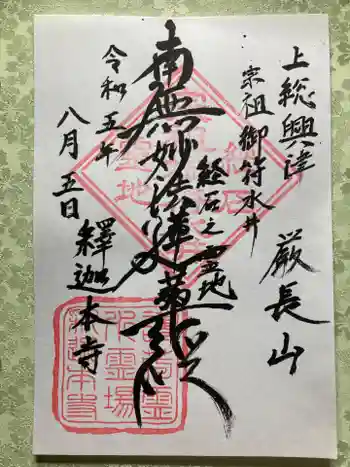 上総興津
宗祖御符水井
厳長山
経石之霊地
南無妙法蓮華経
令和五年
八月五日
釋迦本寺